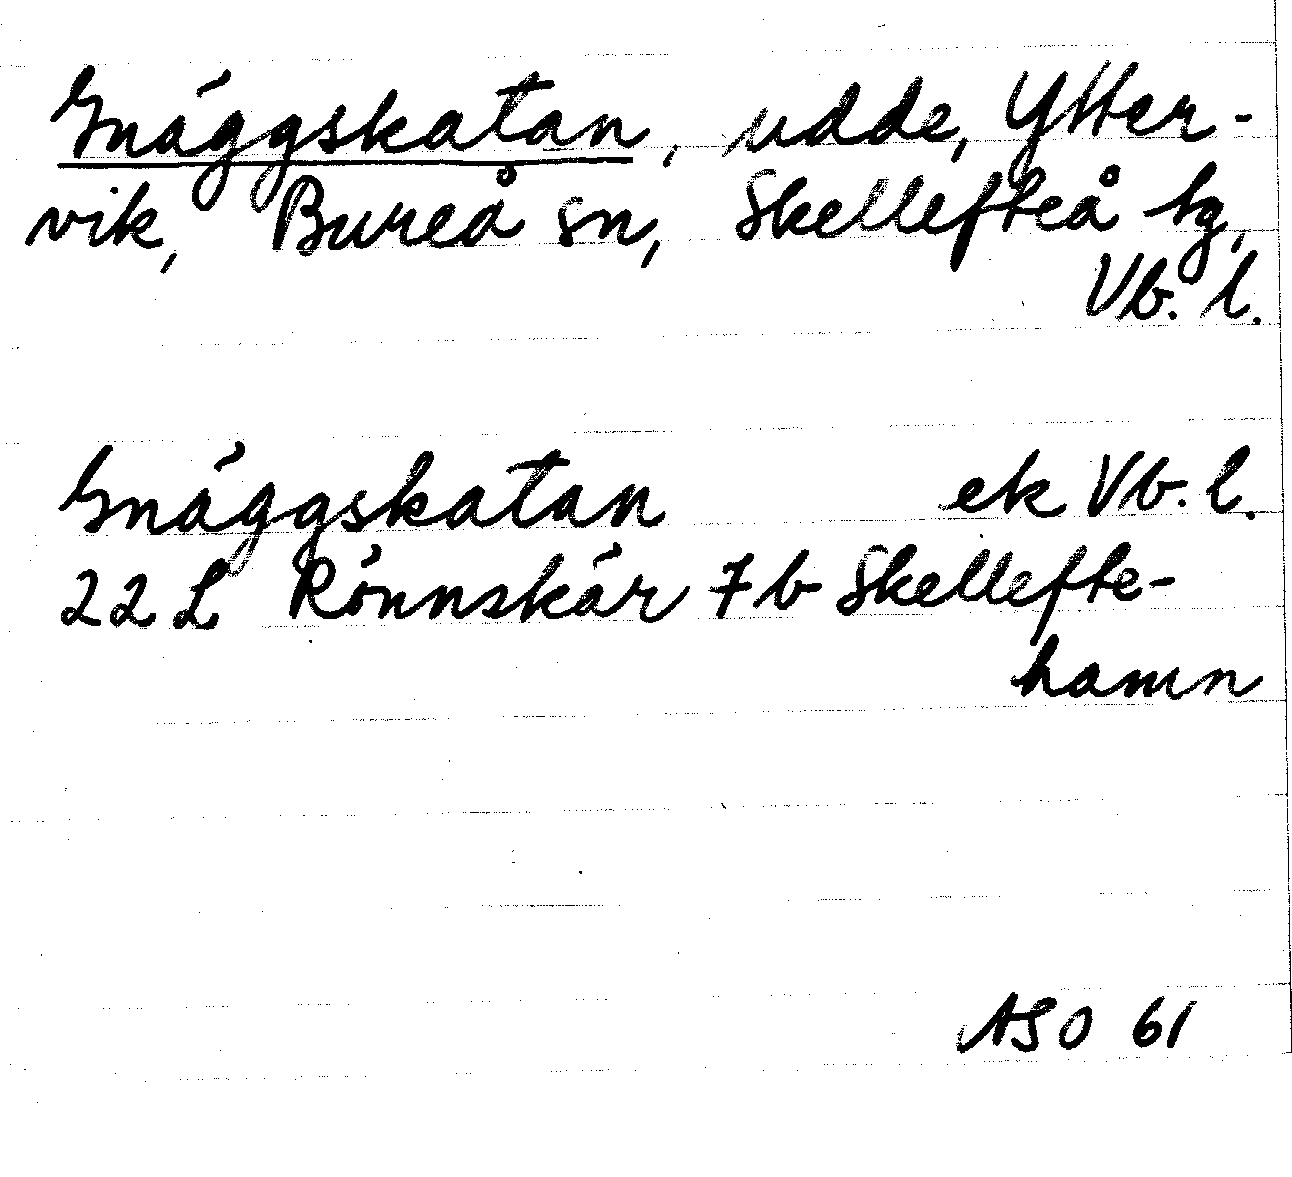 Gnäggskatan, udde, Ytter-
vik, Bureå sn, Skellefteå tg,
Vb. l.
Gnäggskatan ek Vb. l.
22 L Rönnskär 7 b Skellefte-
hamn
ASO 61